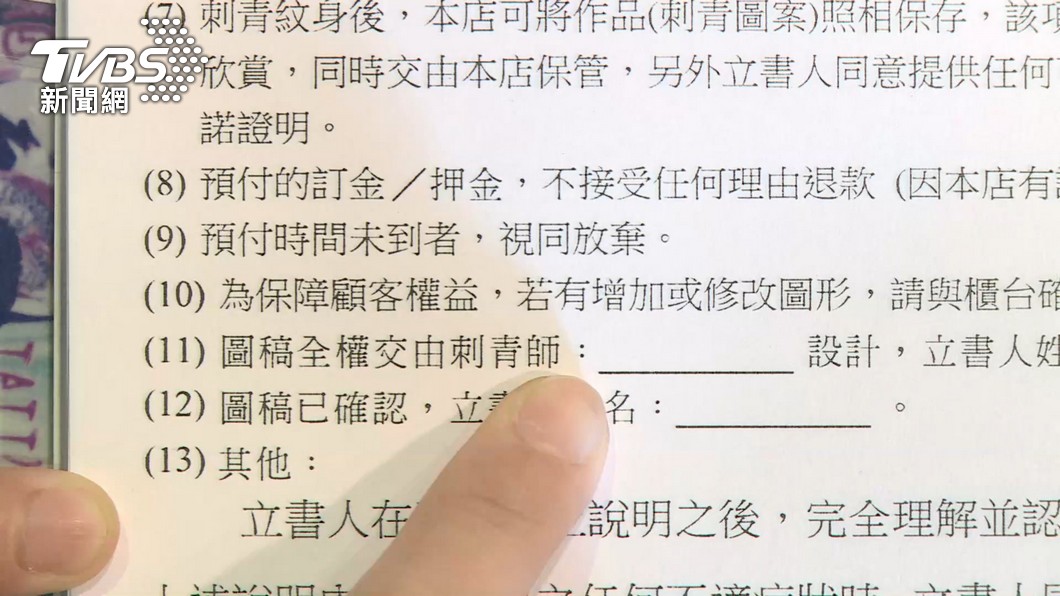 TVBS
新聞網
(7) 刺青紋身後，本店可將作品(刺青圖案)照相保存，該項
欣賞，同時交由本店保管，另外立書人同意提供任何
諾證明。
(8) 預付的訂金／押金，不接受任何理由退款 (因本店有
(9) 預付時間未到者，視同放棄。
(10) 為保障顧客權益，若有增加或修改圖形，請與櫃台確
(11) 圖稿全權交由刺青師：__________ 設計，立書人姓
(12) 圖稿已確認，立書 名：__________ 。
(13) 其他：
立書人在 說明之後，完全理解並認
上述說明內 之任何不適症狀時 立書人